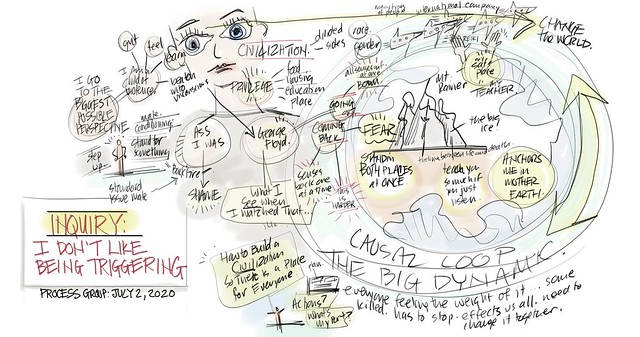 gut
feel
I GO
TO THE
BIGGEST
POSSIBLE
PERSPECTIVE
step
up
stand for
something
standard
issue male
ASS
I WAS
SHAME
CIVILIZATION
PRIVILEGE
divided
sides
race
gender
food
housing
education
place
George
Floyd.
What I
See when I
watched that...
GOING
COMING
BACK
senses
back one
at a time
THIS
IS
HARDER
FEAR
STANDIN
BOTH PLACES
at ONCE
MT
Rainier
the big
ice
teach you
so much if
you just
listen
ANCHORS
ME IN
MOTHER
EARTH.
TEACHER
international company
CHANGE
THE WORLD.
CAUSAL LOOP
THE BIG DYNAMIC.
How to Build a
Civilization
So There is a Place
for Everyone.
Actions?
What's
my Part?
everyone feeling the weight of it... some
killed. has to stop. effects us all. need to
change it together.
INQUIRY:
I DON'T LIKE
BEING TRIGGERING
PROCESS GROUP: JULY 2, 2020